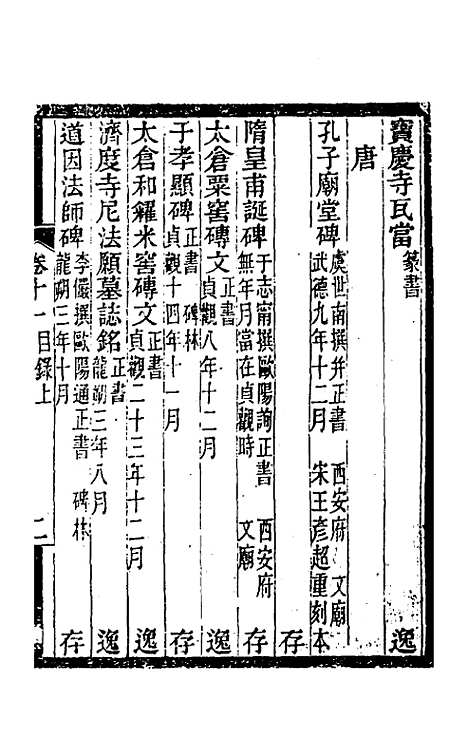 寶慶寺瓦當 篆書 逸
唐
孔子廟堂碑 虞世南撰并正書 西安府 文廟
武德九年十二月 宋王彥超重刻本
存
隋皇甫誕碑 于志甯撰歐陽詢正書 西安府
無年月當在貞觀時 文廟 存
太倉粟窖磚文 正書
貞觀八年十二月 逸
于孝顯碑 正書 碑林
貞觀十四年十一月 存
太倉和糴米窖磚文 正書
貞觀二十三年十二月 逸
濟度寺尼法願墓誌銘 正書
龍朔三年八月 逸
道因法師碑 李儼撰歐陽通正書 碑林
龍朔三年十月 存
卷十一目錄上 二